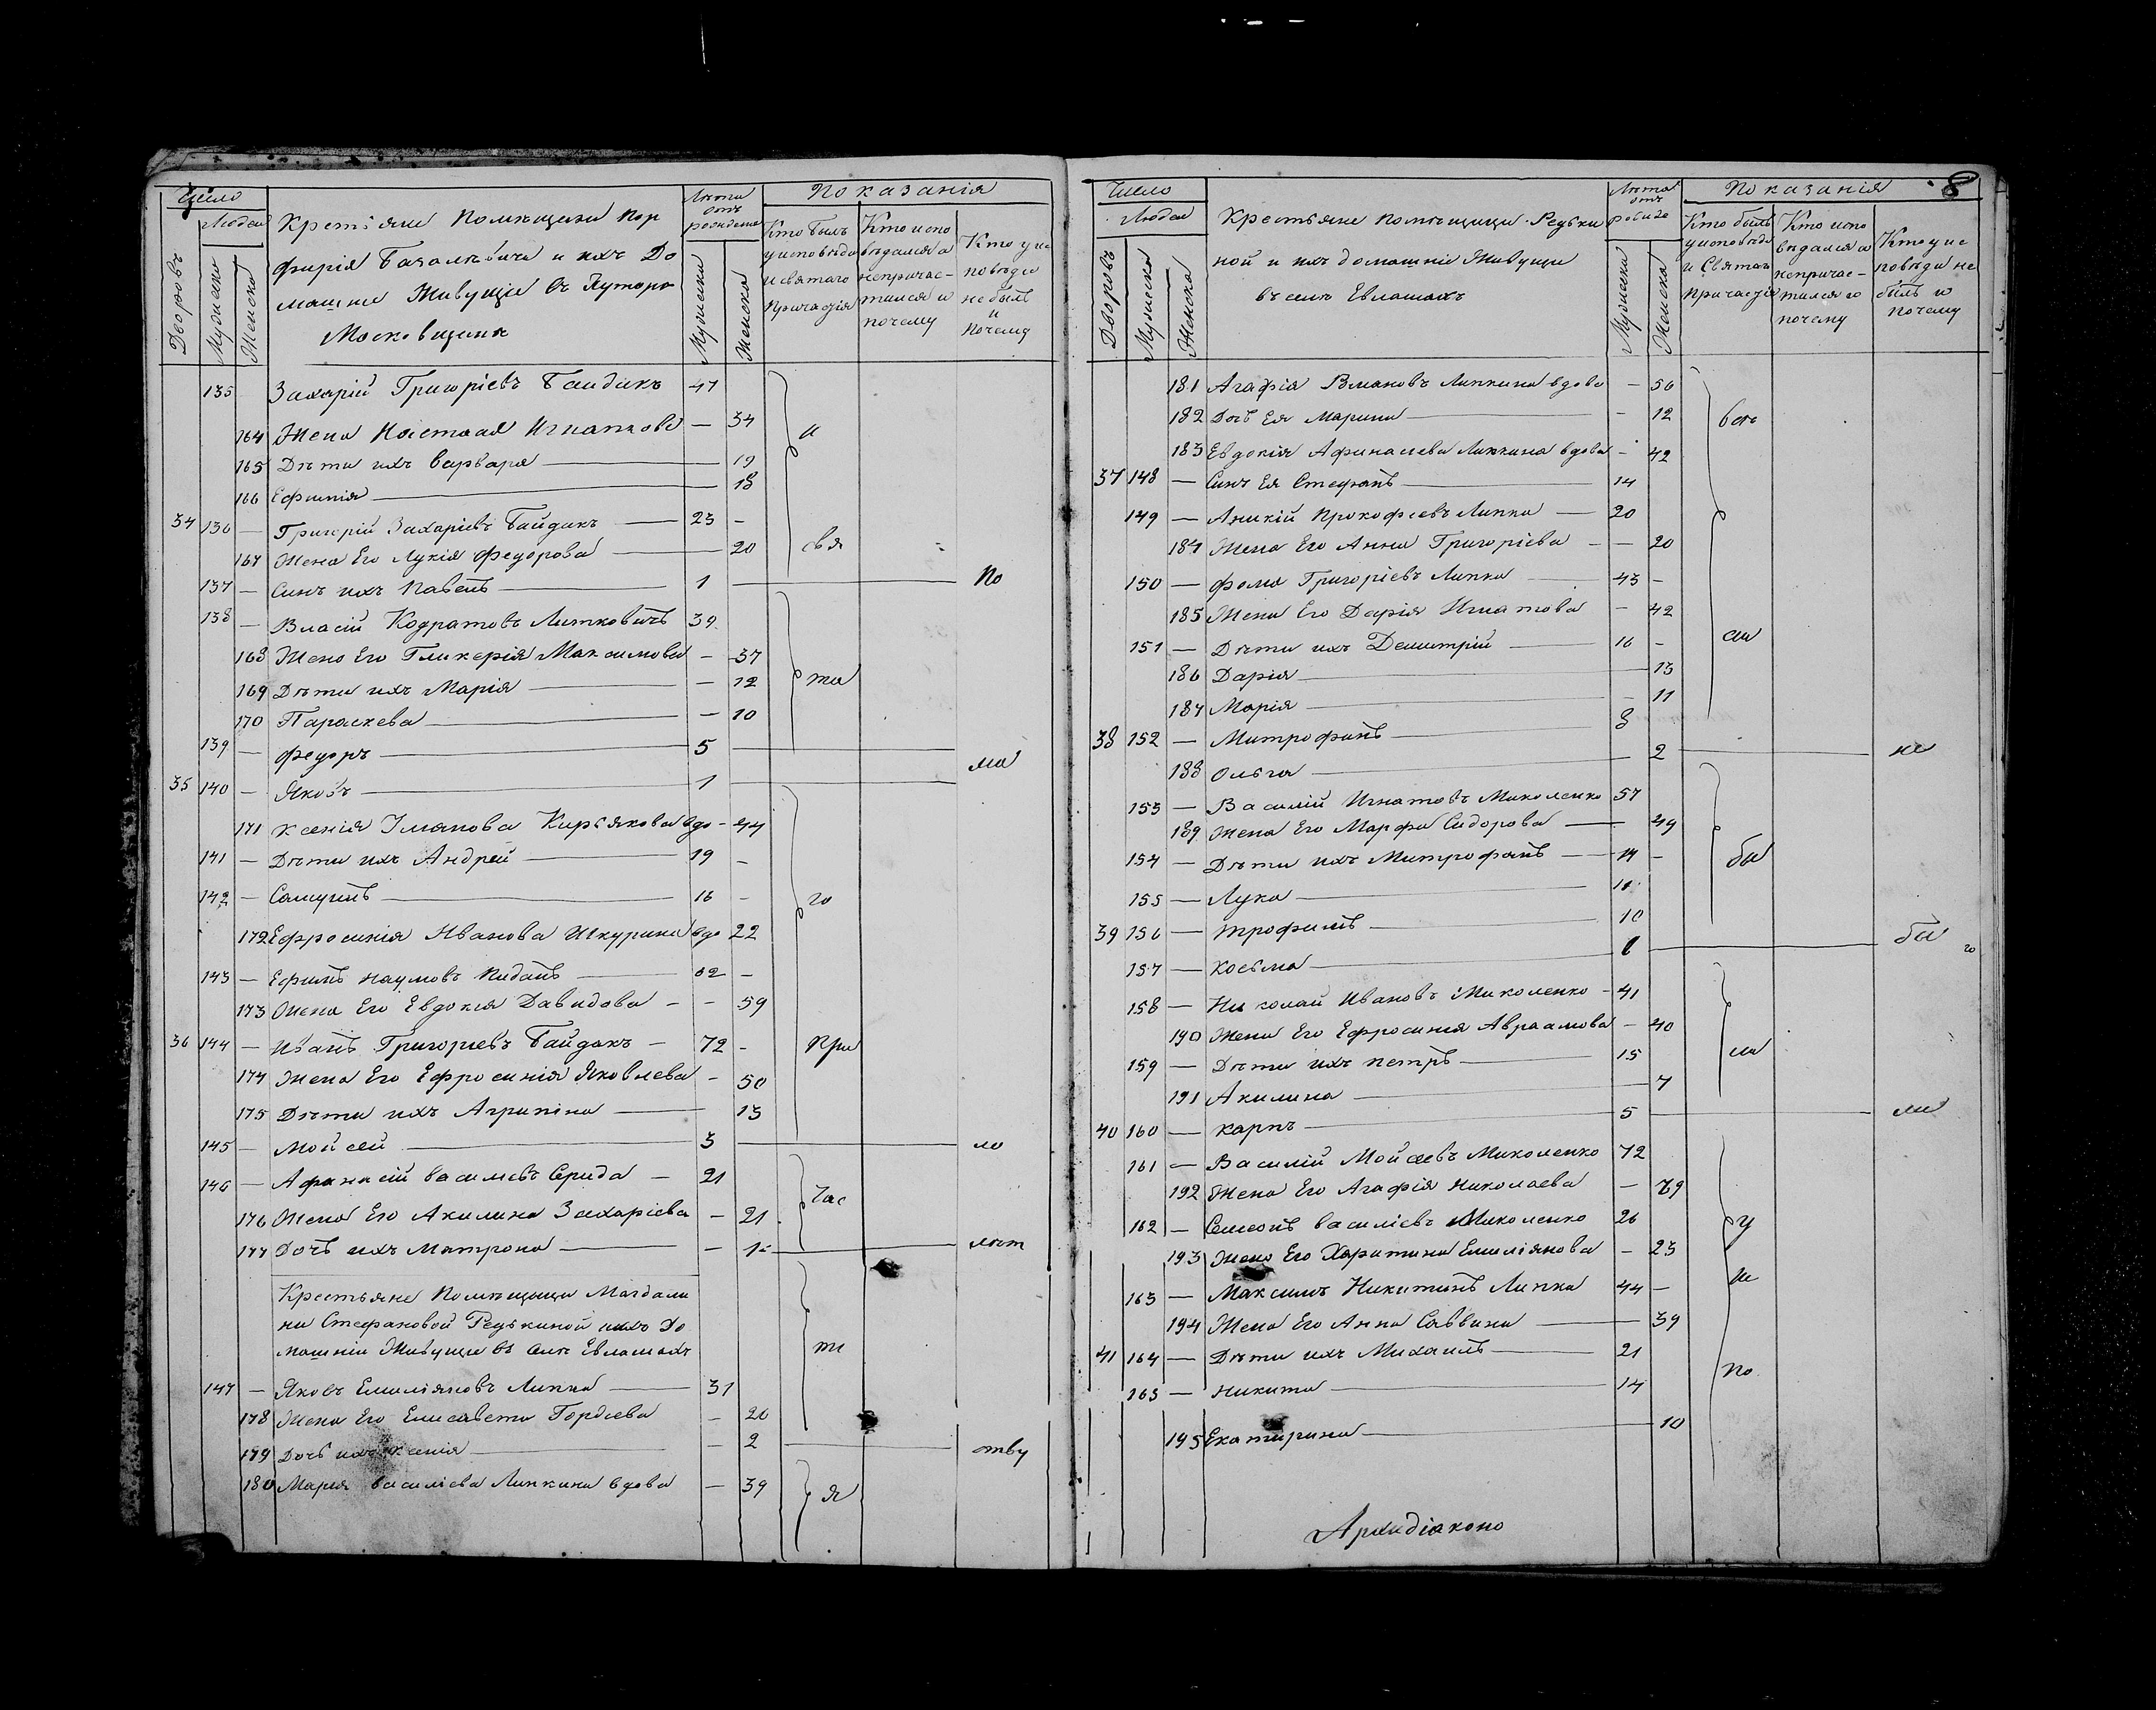 Число
Людей
Дворовъ
Мужеска
Женска
Крестіяне Помѣщика Пор
фирія Базалевича и ихъ До
машніе Живущіе въ Хуторе
Московщинѣ
Лѣта
отъ
рождения
Мужески
Женска
Показанія
Кто былъ
у исповѣди
и святаго
Причастія
Кто испо
вѣдался а
непричас-
тился и
почему
Кто у ис
повѣди
не былъ
и
почему
135 Захарій Григоріевъ Байдакъ 47
164 Жена Настасія Игнатова — 34 и
165 Дѣти ихъ Варвара — 19
166 Ефимія — 18
34 136 — Григорій Захаріевъ Байдакъ — 23 -
167 Жена Его Лукія Федорова — 20 свя
137 — Синъ ихъ Павелъ — 1 — по
138 — Власій Кодратовъ Литковичъ 39
168 Жена Его Гликерія Максимова — 37
169 Дѣти ихъ Марія — 12 та
170 Параскева — 10
139 — Федоръ — 5 —
ма
35 140 — Яковъ — 1 —
171 Ксенія Іманова Кирьякова вдо - 44
141 — Дѣти ихъ Андрей — 19 -
142 — Самуилъ — 16 - го
172 Ефросинія Иванова Шкурина вдо 22
143 — Ефимъ Наумовъ Кидапъ — 62 -
173 Жена Его Евдокія Давидова - - 59
36 144 — Иванъ Григорьевъ Байдакъ — 72 - при
174 Жена Его Ефросинія Яковлева - 50
175 Дѣти ихъ Агрипіна — 13
145 — Мойсей — 3 — ло
146 — Афанасій Василіевъ Серида — 21
час
176 Жена Его Акилина Захаріева — 21
177 Дочь ихъ Матрона — - 1 — лѣт
Крестьяне Помѣщици Магдали
ни Стефановой Редькиной ихъ До
машніи Живущіе въ Селѣ Евлашахъ
ти
147 — Яковъ Емиліяновъ Липка — 31
178 Жена Его Елисавета Гордіева — 26
179 Дочь ихъ Ксенія — 2 — ству
180 Марія Василіева Липкина вдова — 39 я
8
Число
Людей
Дворовъ
Мужеска
Женска
Крестьяне Помѣщици Редьки
ной и ихъ домашніе Живущи
въ селѣ Евлашахъ
Лѣта
отъ
рожде
Мужеска
Женска
Показанія
Кто былъ
у исповѣди
и Святаго
причастія
Кто испо
вѣдался а
непричас-
тился и
почему
Кто у ис
повѣди не
былъ и
почему
181 Агафія Власовъ Липкина вдова — 56
182 Дочь Ея Марина — 12 вси
183 Евдокія Афанасиева Липкина вдова - 42
37 148 — Синъ Ея Стефанъ — 14
149 — Аникій Прокофіевъ Липка — 20
184 Жена Его Анна Григоріева - — 20
150 — Фома Григоріевъ Липка — 43 -
185 Жена Его Дарія Игнатова - 42
151 — Дѣти ихъ Демитрій — 16 - сіи
186 Дарія — 13
187 Марія — 11
38 152 — Митрофанъ — 8
188 Ольга — 2 — не
153 — Василій Игнатовъ Миколенко 57
189 Жена Его Марфа Сидорова — 49
154 — Дѣти ихъ Митрофанъ — 14 - бы
155 — Лука — 11
39 156 — Трофимъ — 10
157 — Косьма — 6 — бы го
158 — Николай Ивановъ Миколенко - 41
190 Жена Его Ефросинія Авраамова — 40
159 — Дѣти ихъ Петръ — 15 ли
191 Акилина — 7
40 160 — Карпъ — 5 — ли
161 — Василій Мойсеевъ Миколенко 72
192 Жена Его Агафія Николаева — 69
162 — Симеонъ Василіевъ Миколенко 26 у
193 Жена Его Харитина Емиліянова — 23
163 — Максимъ Никитинъ Липка 44 — ис
194 Жена Его Анна Саввина — 39
41 164 — Дѣти ихъ Михаилъ — 21
165 — Никита — 14 по
195 Екатирина — 10
Архидіаконо